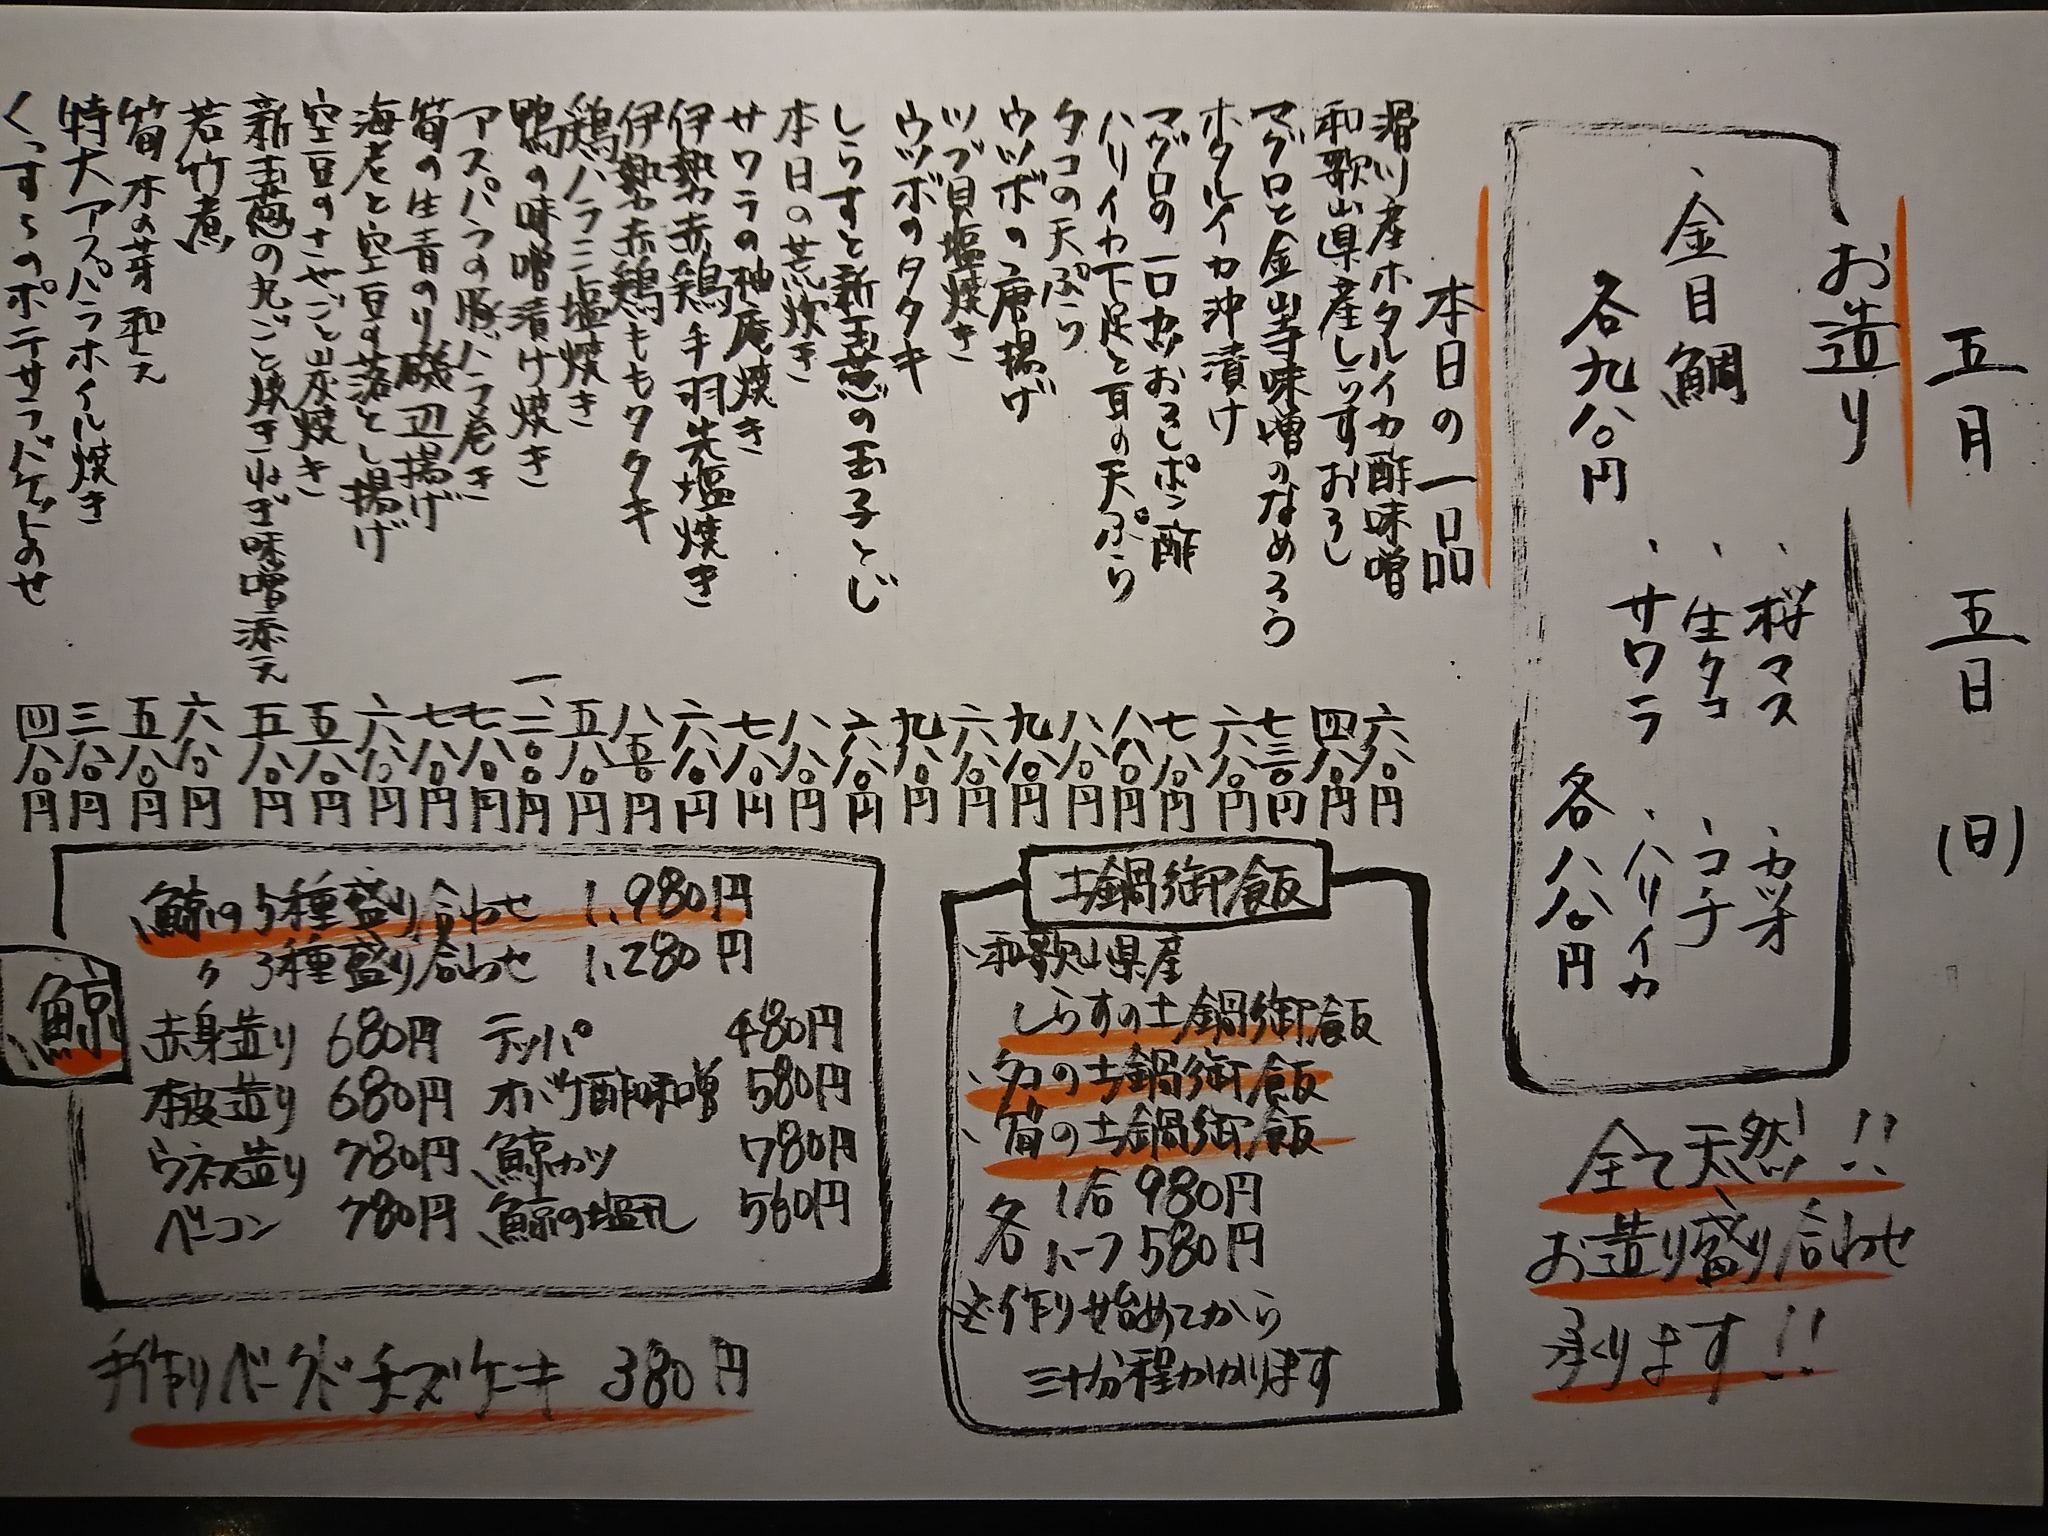 五月 五日 (日)
お造り
・桜マス ・カツオ
・金目鯛 ・生タコ ・コチ
・サワラ ・ハリイカ
各九八〇円 各八八〇円
全て天然!!
お造り盛り合わせ
承ります!!
本日の一品
滑川産ホタルイカ酢味噌 六八〇円
和歌山県産しらすおろし 四八〇円
マグロと金山寺味噌のなめろう 七三〇円
ホタルイカ沖漬け 六八〇円
マグロの一口カツおろしポン酢 七八〇円
ハリイカ下足と耳の天ぷら 八八〇円
タコの天ぷら 八八〇円
ウツボの唐揚げ 九八〇円
ツブ貝塩焼き 六八〇円
ウツボのタタキ 九八〇円
しらすと新玉葱の玉子とじ 六八〇円
本日の荒炊き 八八〇円
サワラの柚庵焼き 七八〇円
伊勢赤鶏手羽先塩焼き 六八〇円
伊勢赤鶏ももタタキ 八五〇円
鶏ハラミ塩焼き 五八〇円
鴨の味噌漬け焼き 一、二〇〇円
アスパラの豚バラ巻き 七八〇円
筍の生青のり磯辺揚げ 七八〇円
海老と空豆の落とし揚げ 六八〇円
空豆のさやごと炭焼き 五八〇円
新玉葱の丸ごと焼きねぎ味噌添え 五八〇円
若竹煮 六八〇円
筍木の芽和え 五八〇円
特大アスパラホイル焼き 三八〇円
くっすらのポテサラバゲットのせ 四八〇円
土鍋御飯
・和歌山県産
しらすの土鍋御飯
・タコの土鍋御飯
・筍の土鍋御飯
各 1合 980円
ハーフ 580円
※作り始めてから
三十分程かかります
鯨
鯨の5種盛り合わせ 1,980円
〃 3種盛り合わせ 1,280円
赤身造り 680円 テッパ 480円
本皮造り 680円 オバケ酢味噌 580円
ウネス造り 780円 鯨カツ 780円
ベーコン 780円 鯨の塩〆 560円
手作りベークドチーズケーキ 380円